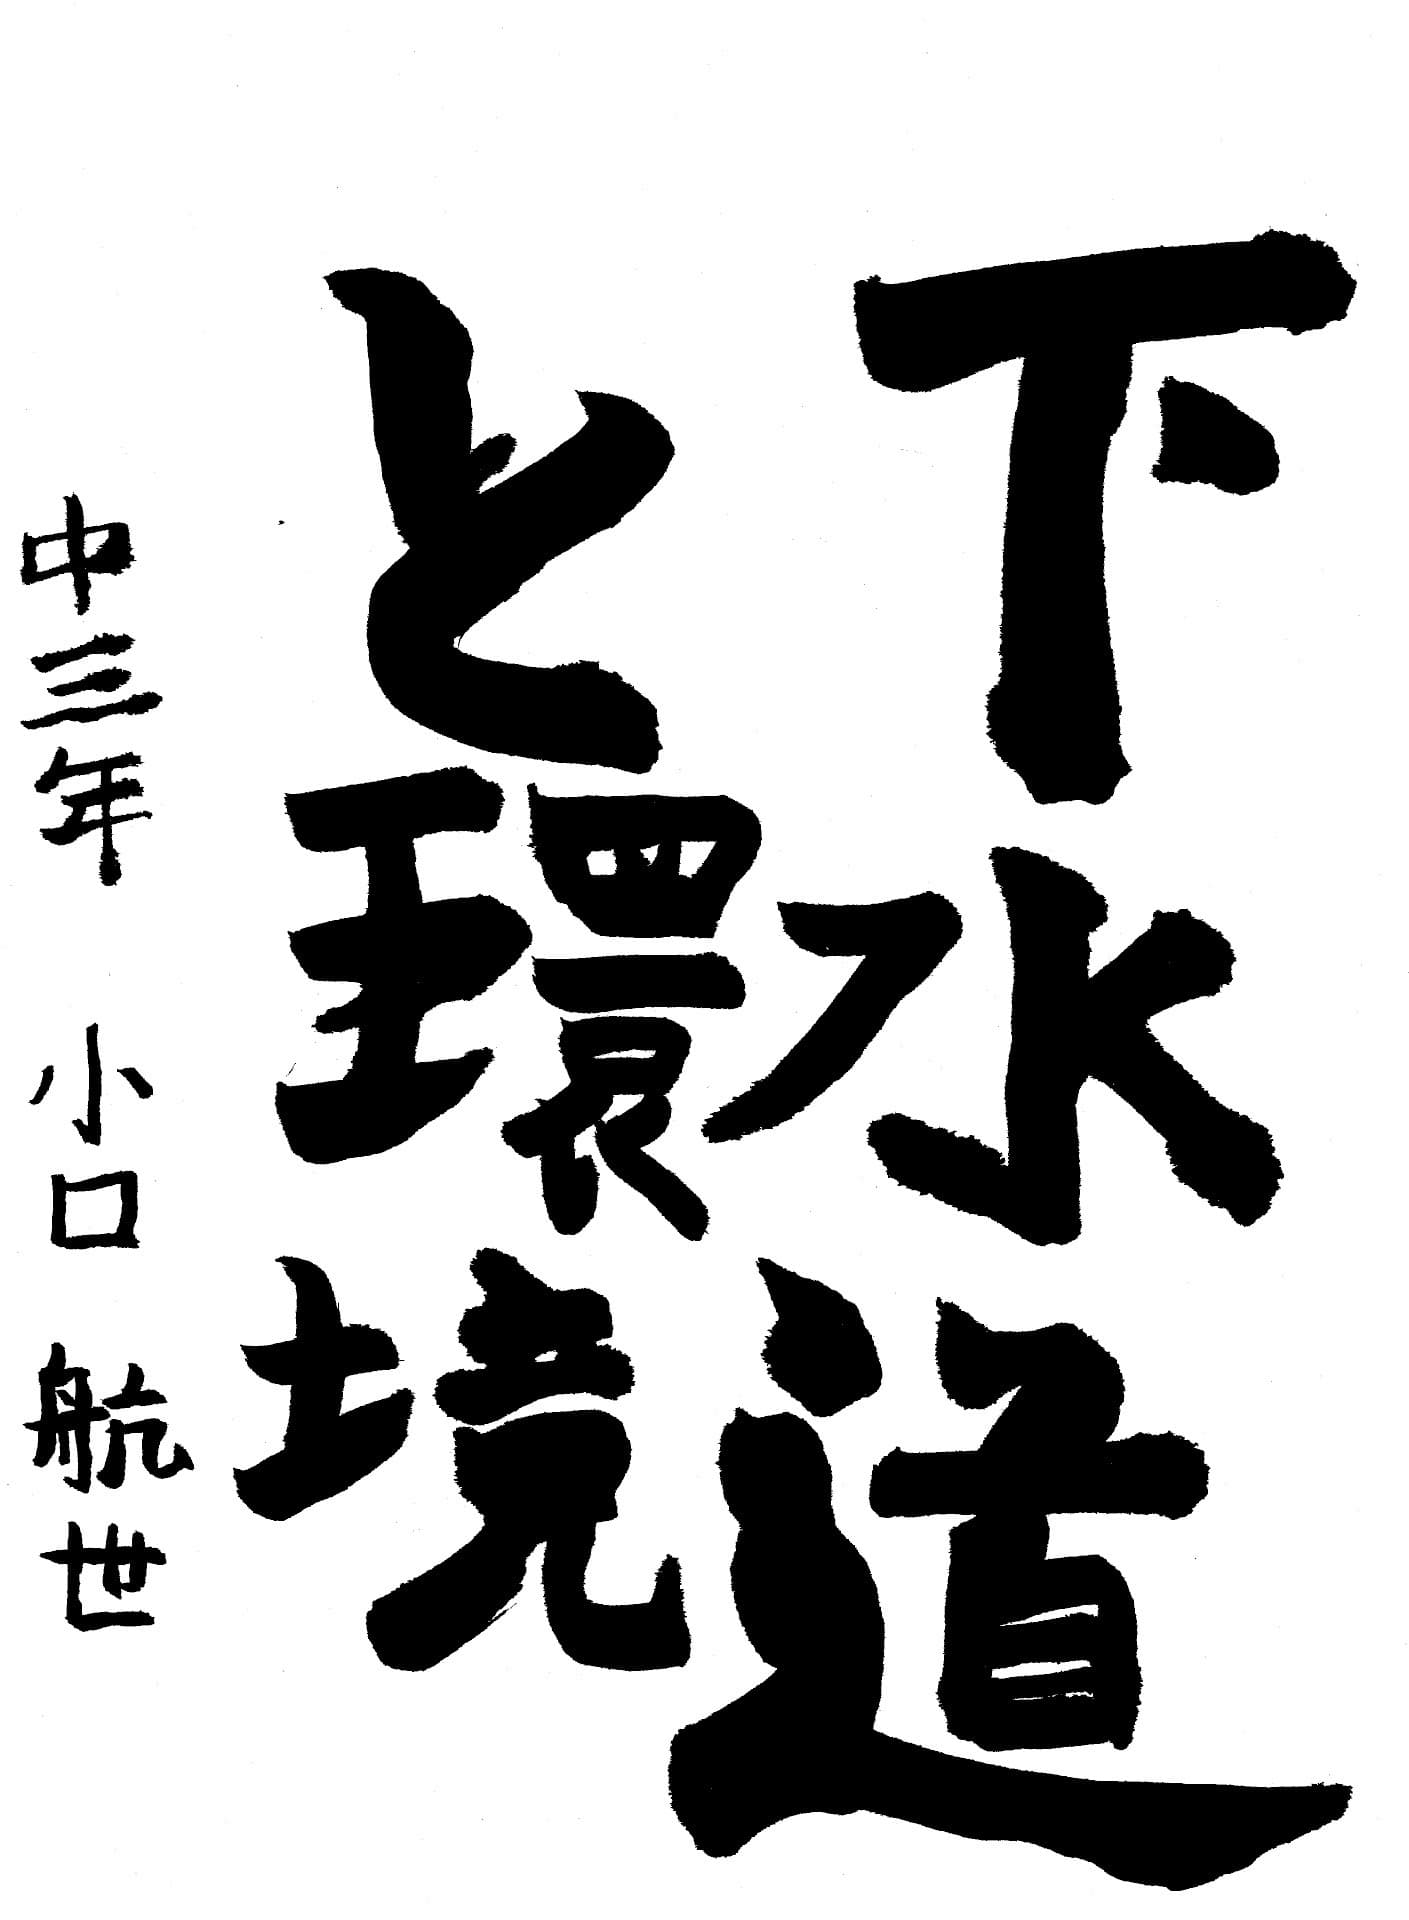 下水道
と環境
中三年 小口航世